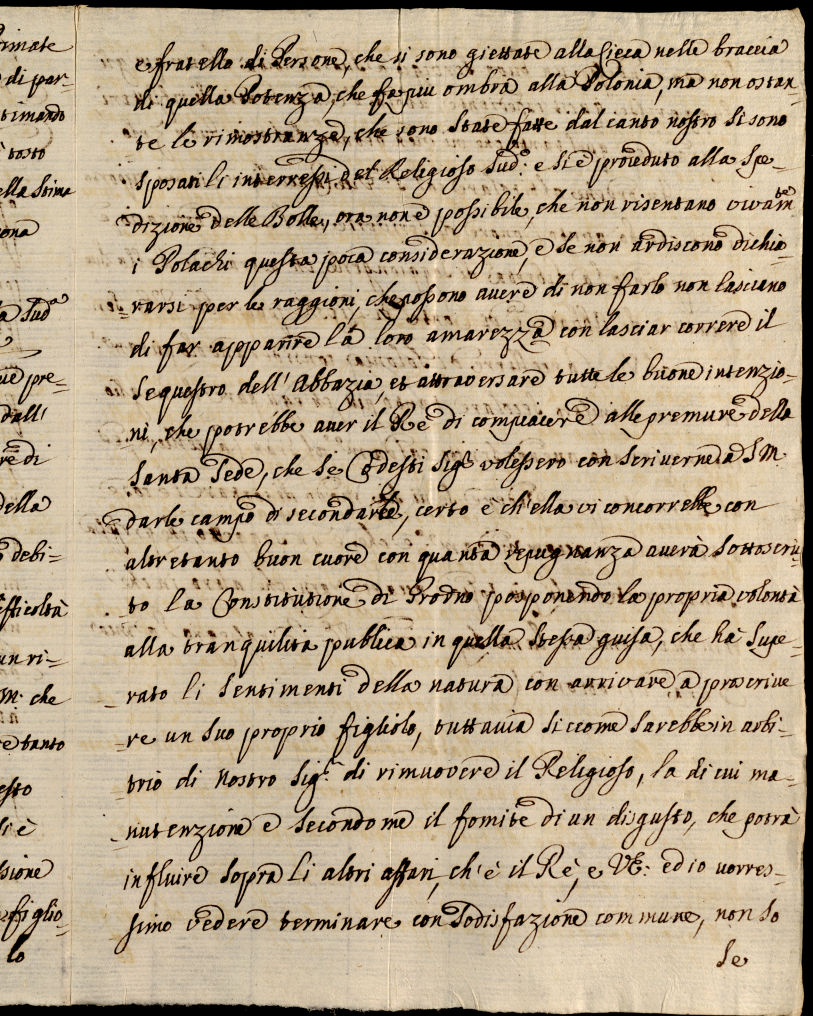 rimate
di par-
timando
tosto
ella Stima
ona
a Sud.a
ue pre-
dall'
re di
della
debi-
fficoltà
un ri-
M. che
re tanto
esto
di è
sione
figlio-
lo
e fratello di Persone, che si sono giettate alla cieca nelle braccia
di quella Potenza, che fa piu ombra alla Polonia, ma non ostan-
te le rimostranze, che sono State fatte dal canto nostro Si sono
sposati li interressi del Religioso Sud.o e Si è proveduto alla Spe-
dizione delle Bolle, ora non è possibile, che non risentano vivam.te
i Polachi questa poca considerazione, e Se non ardiscono dichia-
-rarsi per le raggioni, che possono avere di non farlo non lasciano
di far apparire la loro amarezza con lasciar correre il
Sequestro dell'Abbazia, et attraversare tutte le buone intenzio-
ni, che potrebbe aver il Rè di compiacere alle premure della
Santa Sede, che Se Codesti Sig.ri volessero con Scriverne a S M.
darle campo di secondarle, certo è ch'ella vi concorrebbe con
altretanto buon cuore con quanta repugnanza averà Sottoscri-
to la Constitutione di Grodno posponendo la propria volontà
alla tranquilità publica in quella Stessa guisa, che hà Supe-
rato li Sentimenti della natura con arrivare a proscrive
-re un Suo proprio figliolo, tuttavia Siccome Sarebbe in arbi-
trio di Nostro Sig.re di rimuovere il Religioso, la di cui ma-
-nutenzione è Secondo me il fomite di un disgusto, che potrà
influire Sopra li altri affari, ch'è il Rè, e VE: ed io vorres-
simo vedere terminare con Sodisfazione commune, non So
Se